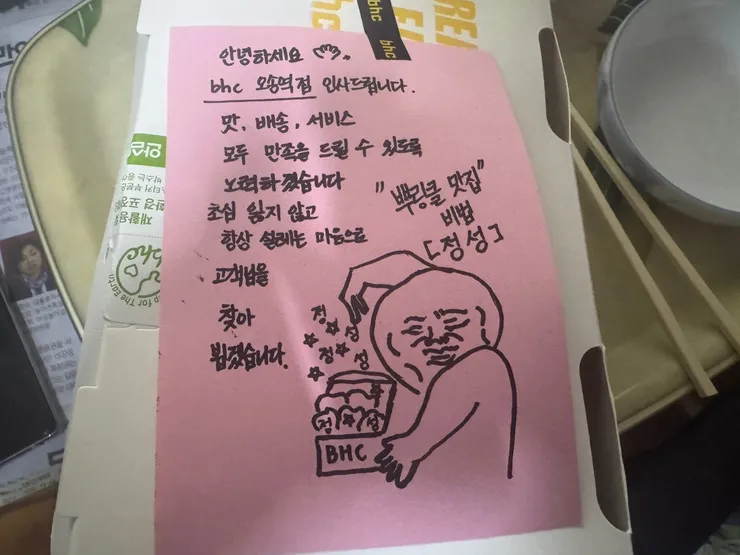 안녕하세요
bhc 오송역점 인사드립니다.
맛, 배송, 서비스
모두 만족을 드릴 수 있도록
노력하겠습니다
초심 잃지 않고
항상 설레는 마음으로
고객님을
찾아
뵙겠습니다.
"뿌링클 맛집"
비법
[정성]
정 성
정 성
정 성
BHC
bhc
bhc
bhc
재활용
For The Earth
bhc